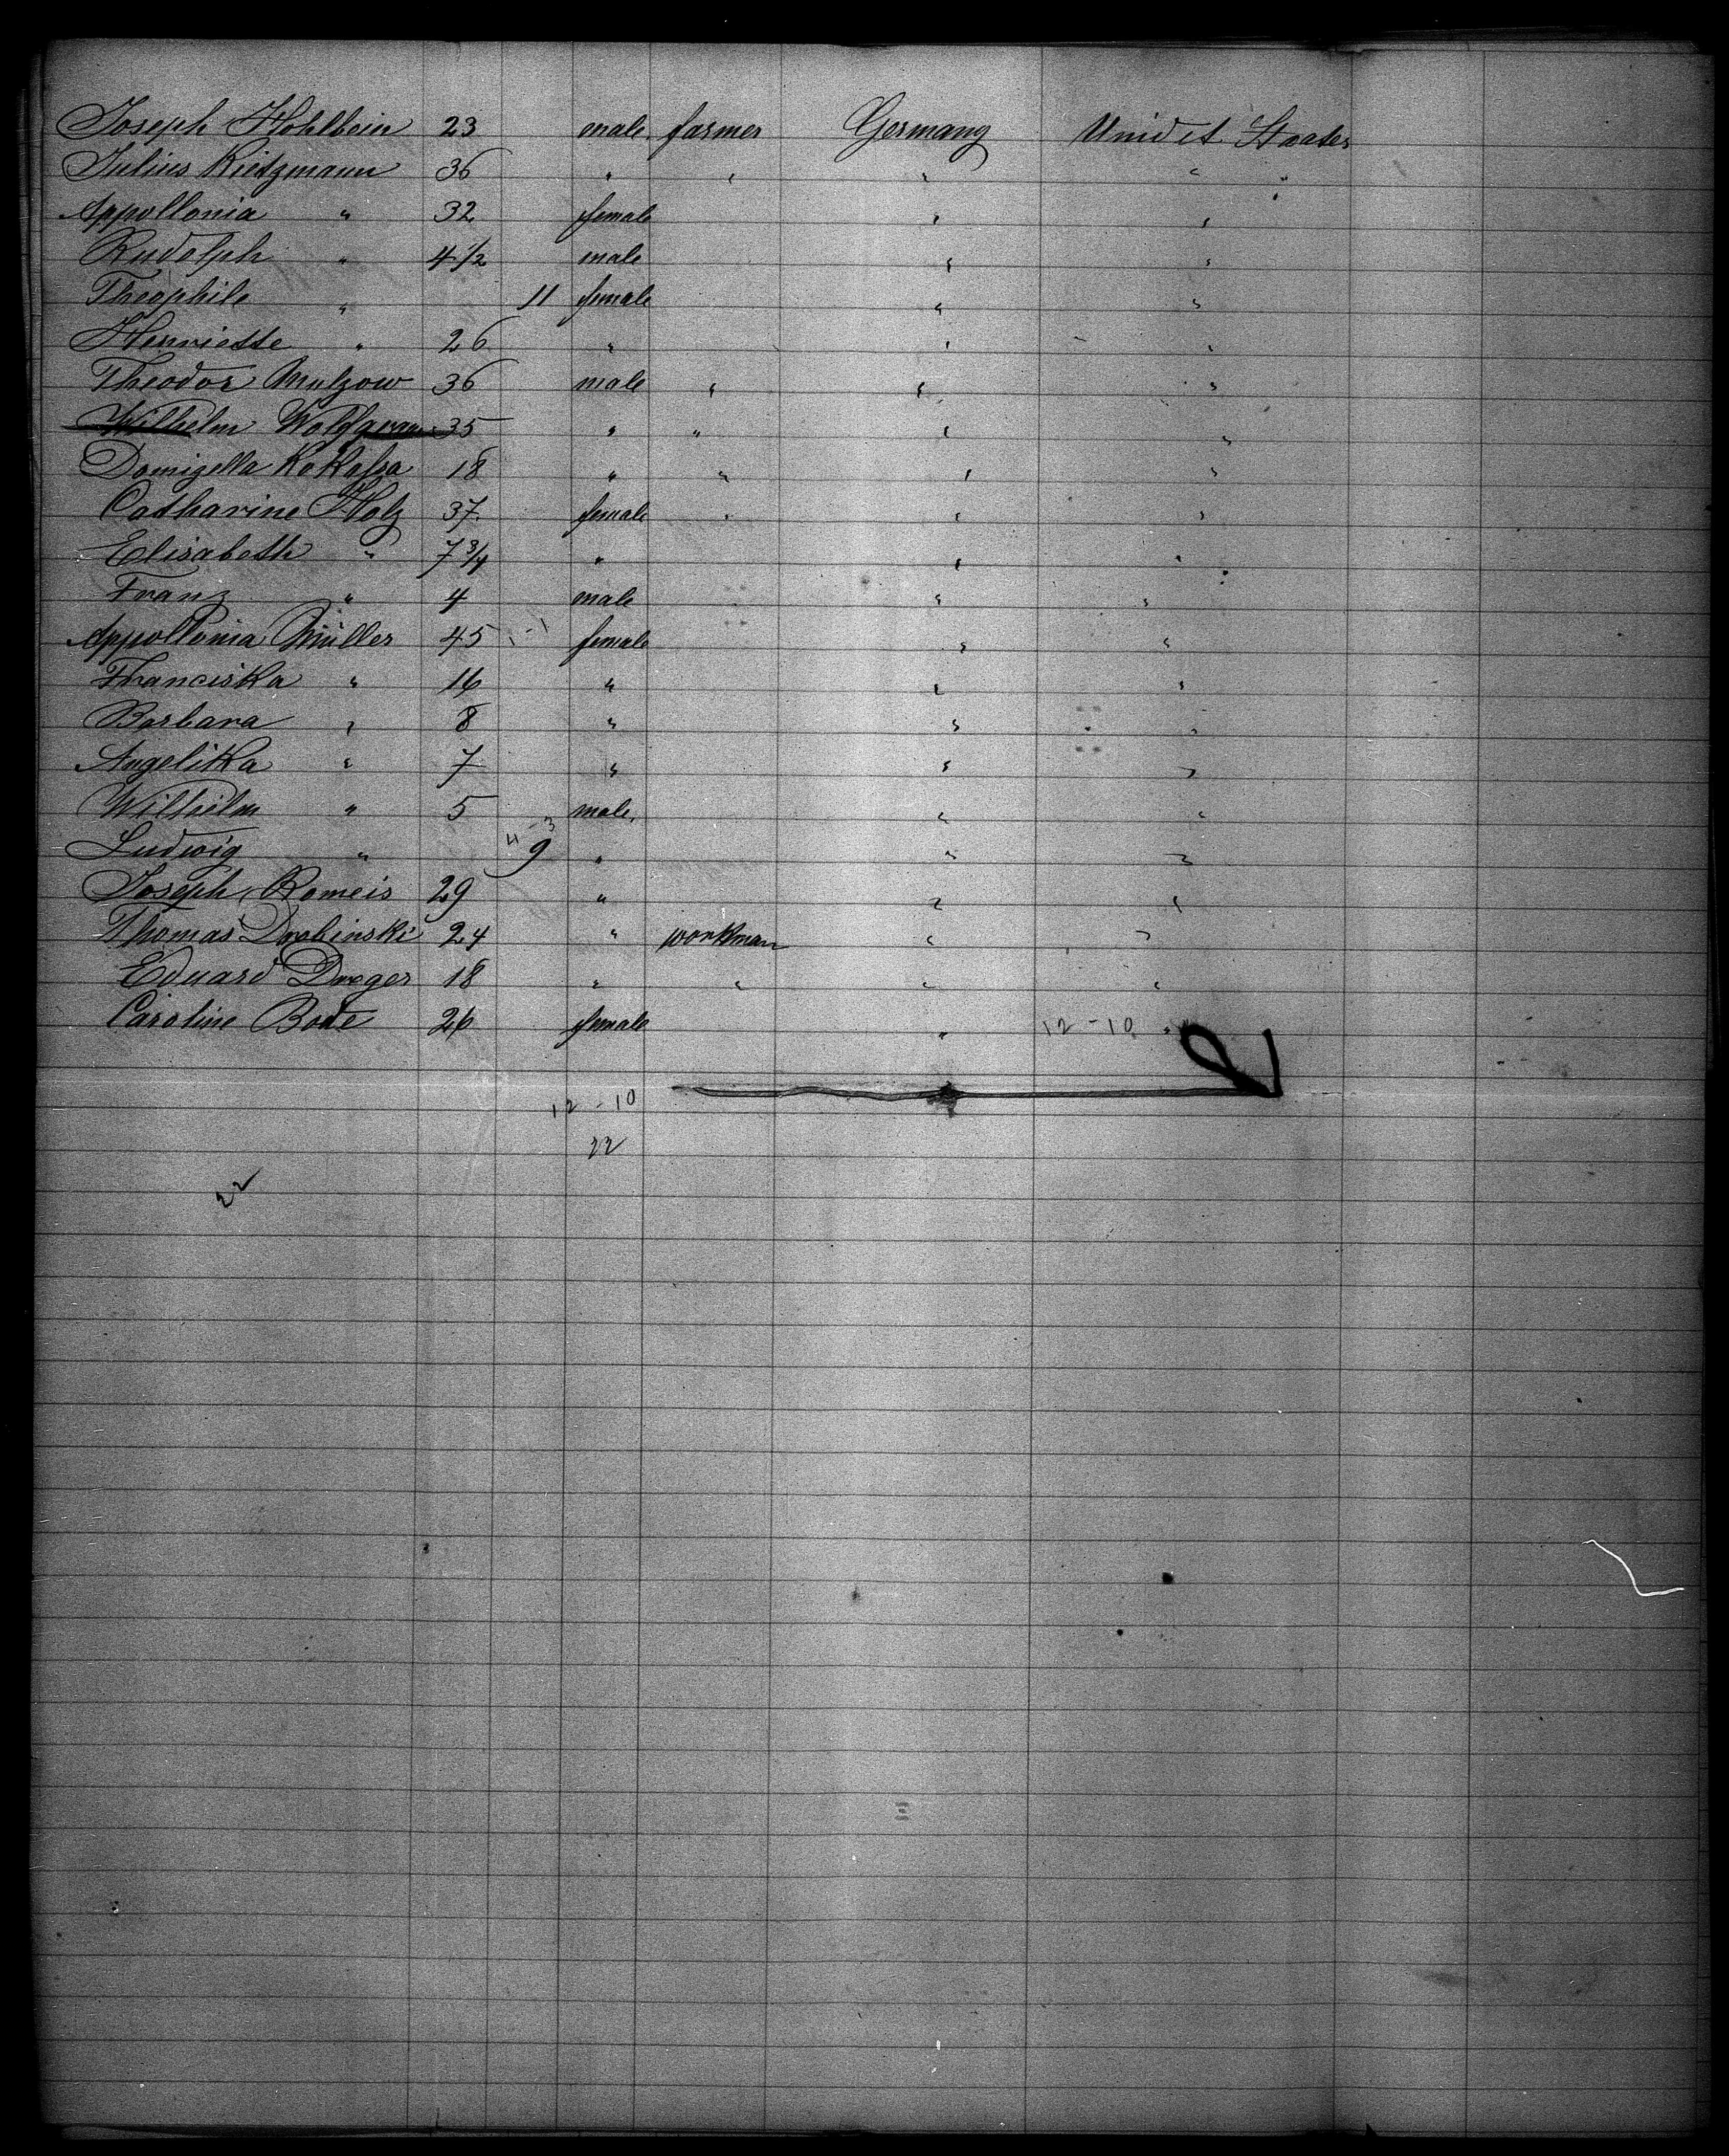 Joseph Hohlbein 23 male farmer Germany Unidet Staates
Julius Rietzmann 36 " " " " "
Appollonia " 32 female " "
Rudolph " 4 1/2 male " "
Theophile " 11 female " "
Henriette " 26 " " "
Theodor Mulzow 36 male " " "
Wilhelm Wolfgram 35 " " " "
Domizella 18 " " " "
Catharine Holz 37 female " " "
Elisabeth " 7 3/4 " " "
Franz " 4 male " "
Appollonia Müller 45 female " "
Franciska " 16 " " "
Barbara " 8 " " "
Angelika " 7 " " "
Wilhelm " 5 male " "
Ludwig " 9 " " "
Joseph Romeis 29 " " "
Thomas Drobinski 24 " workman " "
Eduard Dreger 18 " " " "
Caroline Bode 26 female " 12-10 "
12-10
22
22